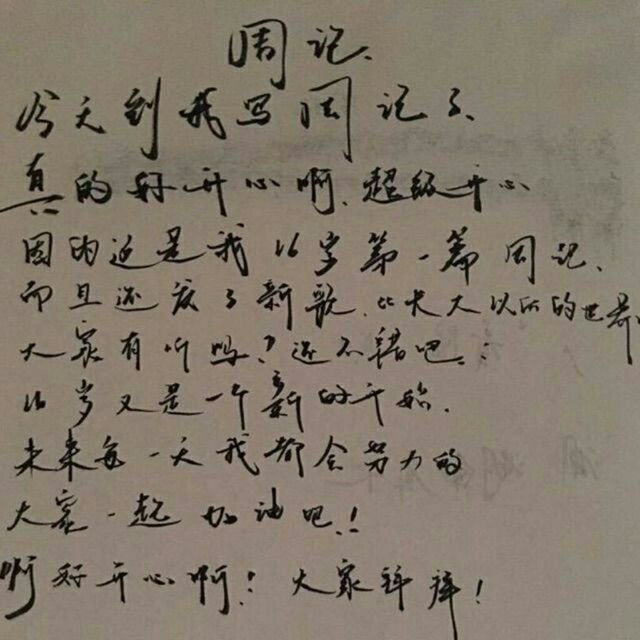 周记
今天到我写周记了、
真的好开心啊、超级开心
因为这是我16岁第一篇周记、
而且还发了新歌、比长大以后的世界
大家有听吗？还不错吧。：
16岁又是一个新的开始、
未来每一天我都会努力的
大家一起加油吧！
啊好开心啊！大家拜拜！